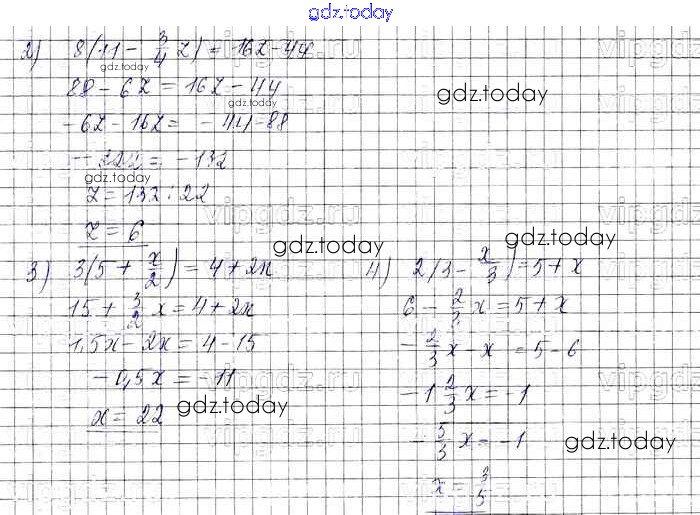 gdz.today
2) 8(11 - 3/4 z) = 16z - 44
gdz.today
88 - 6z = 16z - 44
gdz.today
gdz.today
-6z - 16z = -44 - 88
-22z = -132
gdz.today
z = 132 : 22
z = 6
gdz.today
gdz.today
3) 3(5 + x/2) = 4 + 2x
15 + 3/2 x = 4 + 2x
1,5x - 2x = 4 - 15
-0,5x = -11
x = 22
gdz.today
4) 2(3 - x/3) = 5 + x
6 - 2/3 x = 5 + x
- 2/3 x - x = 5 - 6
-1 2/3 x = -1
- 5/3 x = -1
gdz.today
x = 3/5
vipgdz.ru
vipgdz.ru
vipgdz.ru